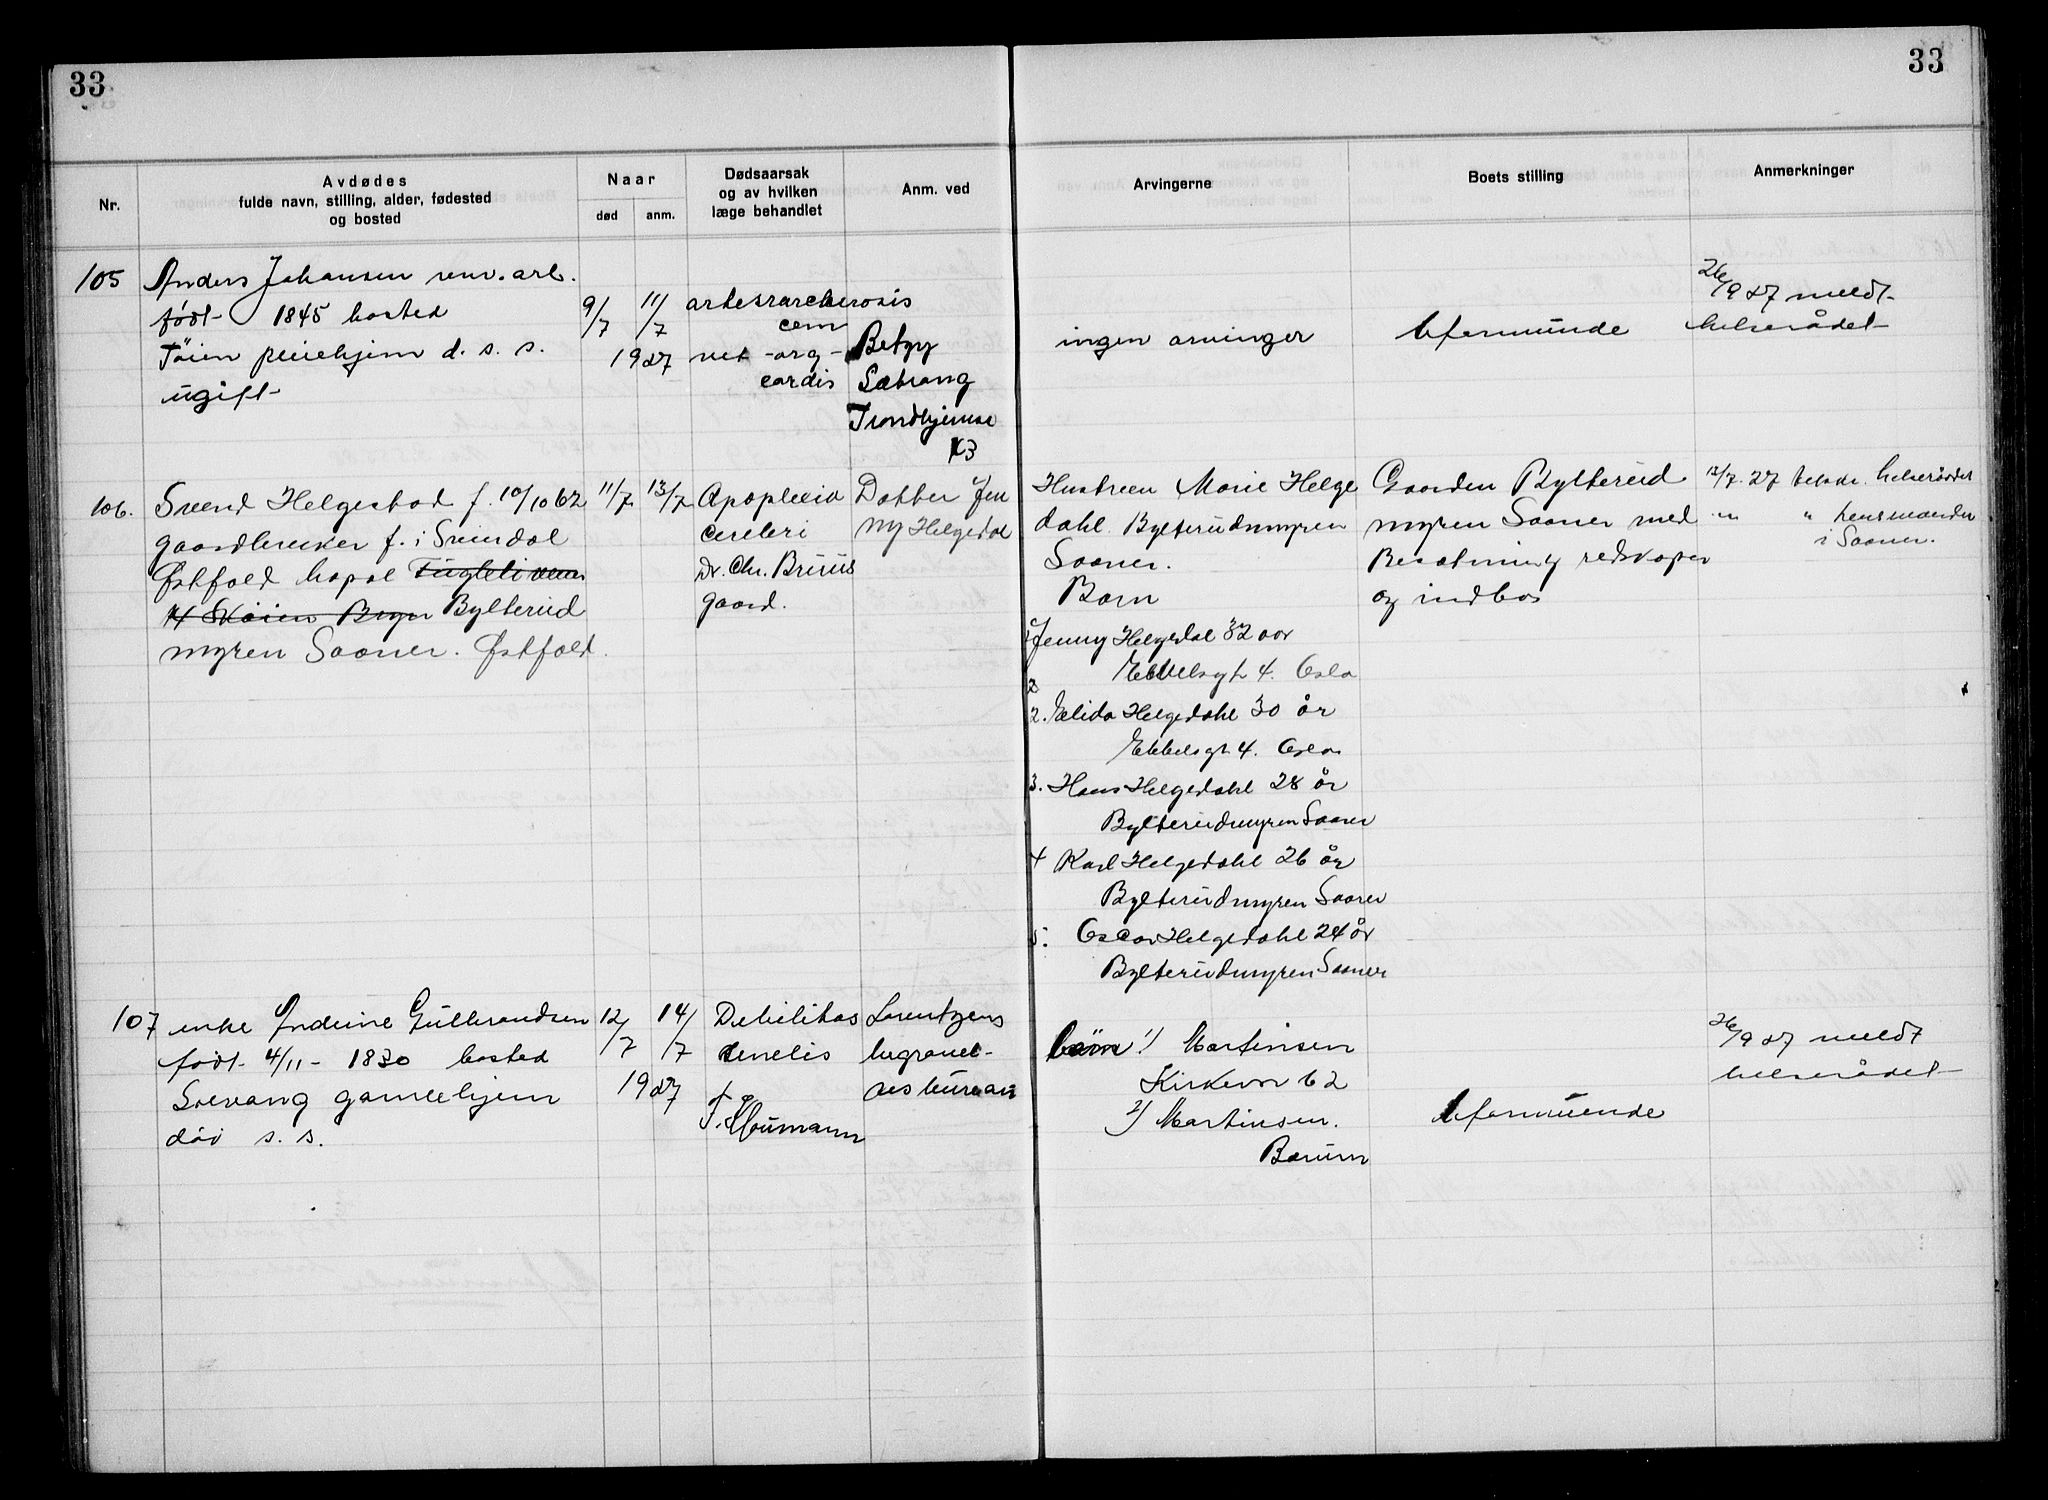 33
33
Nr.
Avdødes
fulde navn, stilling, alder, fødested
og bosted
Naar
død
anm.
Dødsaarsak
og av hvilken
læge behandlet
Anm. ved
Arvingerne
Boets stilling
Anmerkninger
105
Anders Johansen renv. arb.
født 1845 bosted
Töien pleiehjem d. s. s.
ugift
9/7 11/7
1927
cem
vet - org -
cordis
Betzy
Sætrang
Trondhjemsv
ingen arvinger
Uformuende
26/9 27 meldt
helserådet
106.
Svend Helgestad f. 10/10 62
gaardbruker f. i Svindal
Østfold bopæl
Bylterud
myren Saaner. Østfold.
11/7 13/7
Apoplexia
cerebri
Dr. Chr. Bruus
gaard.
Datter Jen
ny Helgedal
Hustruen Marie Helge
dahl Bylterudmyren
Saaner.
Barn
1 Jenny Helgedal 32 aar
Ebbelsgt 4. Oslo
2
2. Elida Helgedahl 30 år
Ebbelsgt 4. Oslo
3. Hans Helgedahl 28 år
Bylterudmyren Saaner
4 Karl Helgedahl 26 år
Bylterudmyren Saaner
5. Oscar Helgedahl 24 år
Bylterudmyren Saaner
Gaarden Bylterud
myren Saaner med
Besætning redskaper
og indbo
/7. 27 helserådet
" " lensmanden
i Saaner.
107
enke Andrine Gulbrandsen
født 4/11 - 1830 bosted
Solvang gamlehjem
död s. s.
12/7 14/7
1927
Debilitas
senelis
Lorentzens
begravel-
ses bureau
barn 1/ Martinsen
Kirkevn 62
2/ Martinsen.
Bærum
Uformuende
26/9 27 meldt
helserådet